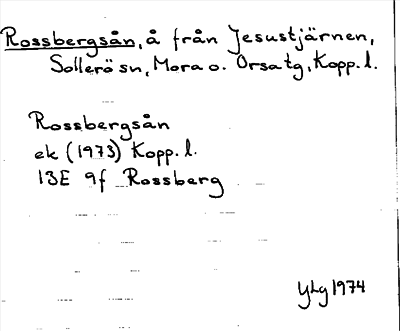 Rossbergsån, å från Jesustjärnen,
Sollerö sn, Mora o. Orsa tg, Kopp. l.
Rossbergsån
ek (1973) Kopp. l.
13E 9f Rossberg
YLg 1974